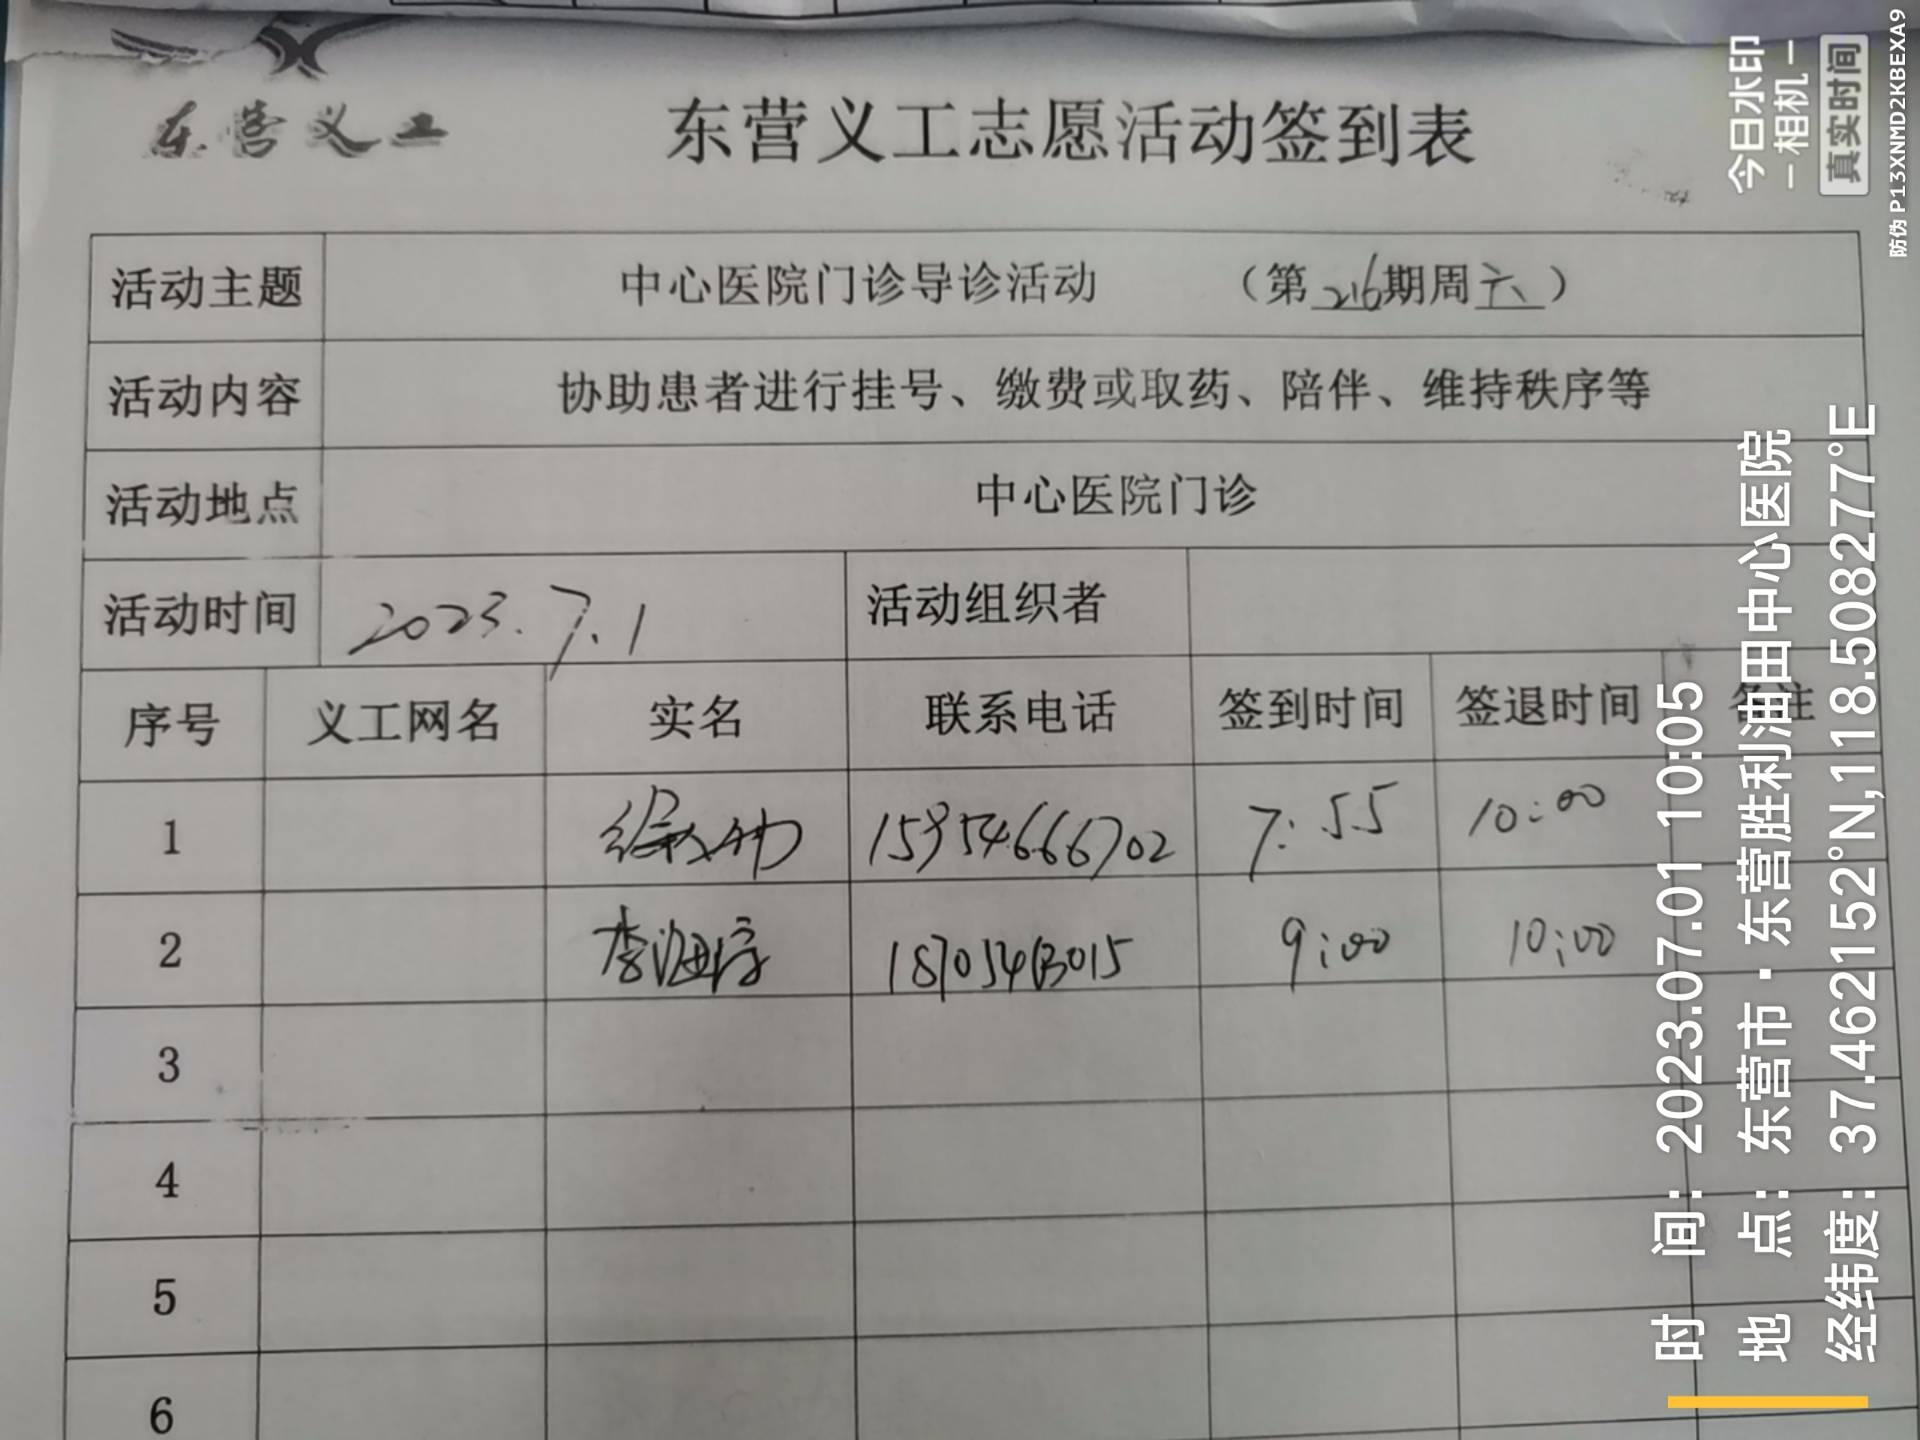 东营义工
东营义工志愿活动签到表
活动主题 中心医院门诊导诊活动 （第216期周六）
活动内容 协助患者进行挂号、缴费或取药、陪伴、维持秩序等
活动地点 中心医院门诊
活动时间 2023.7.1 活动组织者
序号 义工网名 实名 联系电话 签到时间 签退时间 备注
1 15954666702 7:55 10:00
2 李海 9:00 10:00
3
4
5
6
今日水印
相机
真实时间
防伪 P13XNMD2KBEXA9
时 间：2023.07.01 10:05
地 点：东营市·东营胜利油田中心医院
经纬度：37.462152°N,118.508277°E